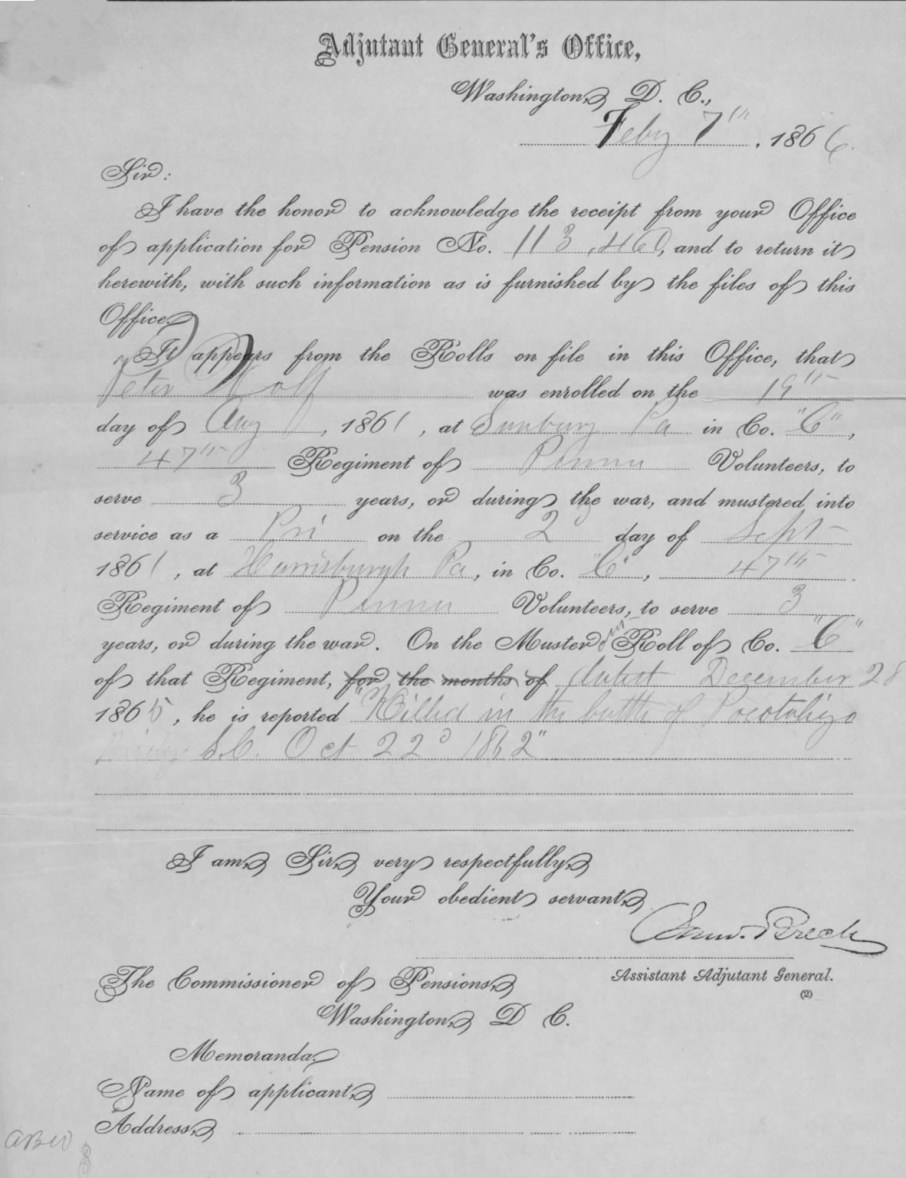 Adjutant General's Office,
Washington, D. C.,
Feby 7th, 1866.
Sir:
I have the honor to acknowledge the receipt from your Office
of application for Pension No. 113,460, and to return it
herewith, with such information as is furnished by the files of this
Office.
It appears from the Rolls on file in this Office, that
Peter Wolf was enrolled on the 19th
day of Aug, 1861, at Sunbury Pa in Co. "C",
47th Regiment of Penna Volunteers, to
serve 3 years, or during the war, and mustered into
service as a Pri on the 2d day of Sept
1861, at Harrisburgh Pa, in Co. "C", 47th
Regiment of Penna Volunteers, to serve 3
years, or during the war. On the Muster out Roll of Co. "C"
of that Regiment, for the months of dated December 28
1865, he is reported "Killed in the battle of Pocotaligo
S.C. Oct 22d 1862"
I am, Sir, very respectfully,
Your obedient servant,
Saml. Breck
Assistant Adjutant General.
(2)
The Commissioner of Pensions,
Washington, D C.
Memoranda,
Name of applicant,
Address,